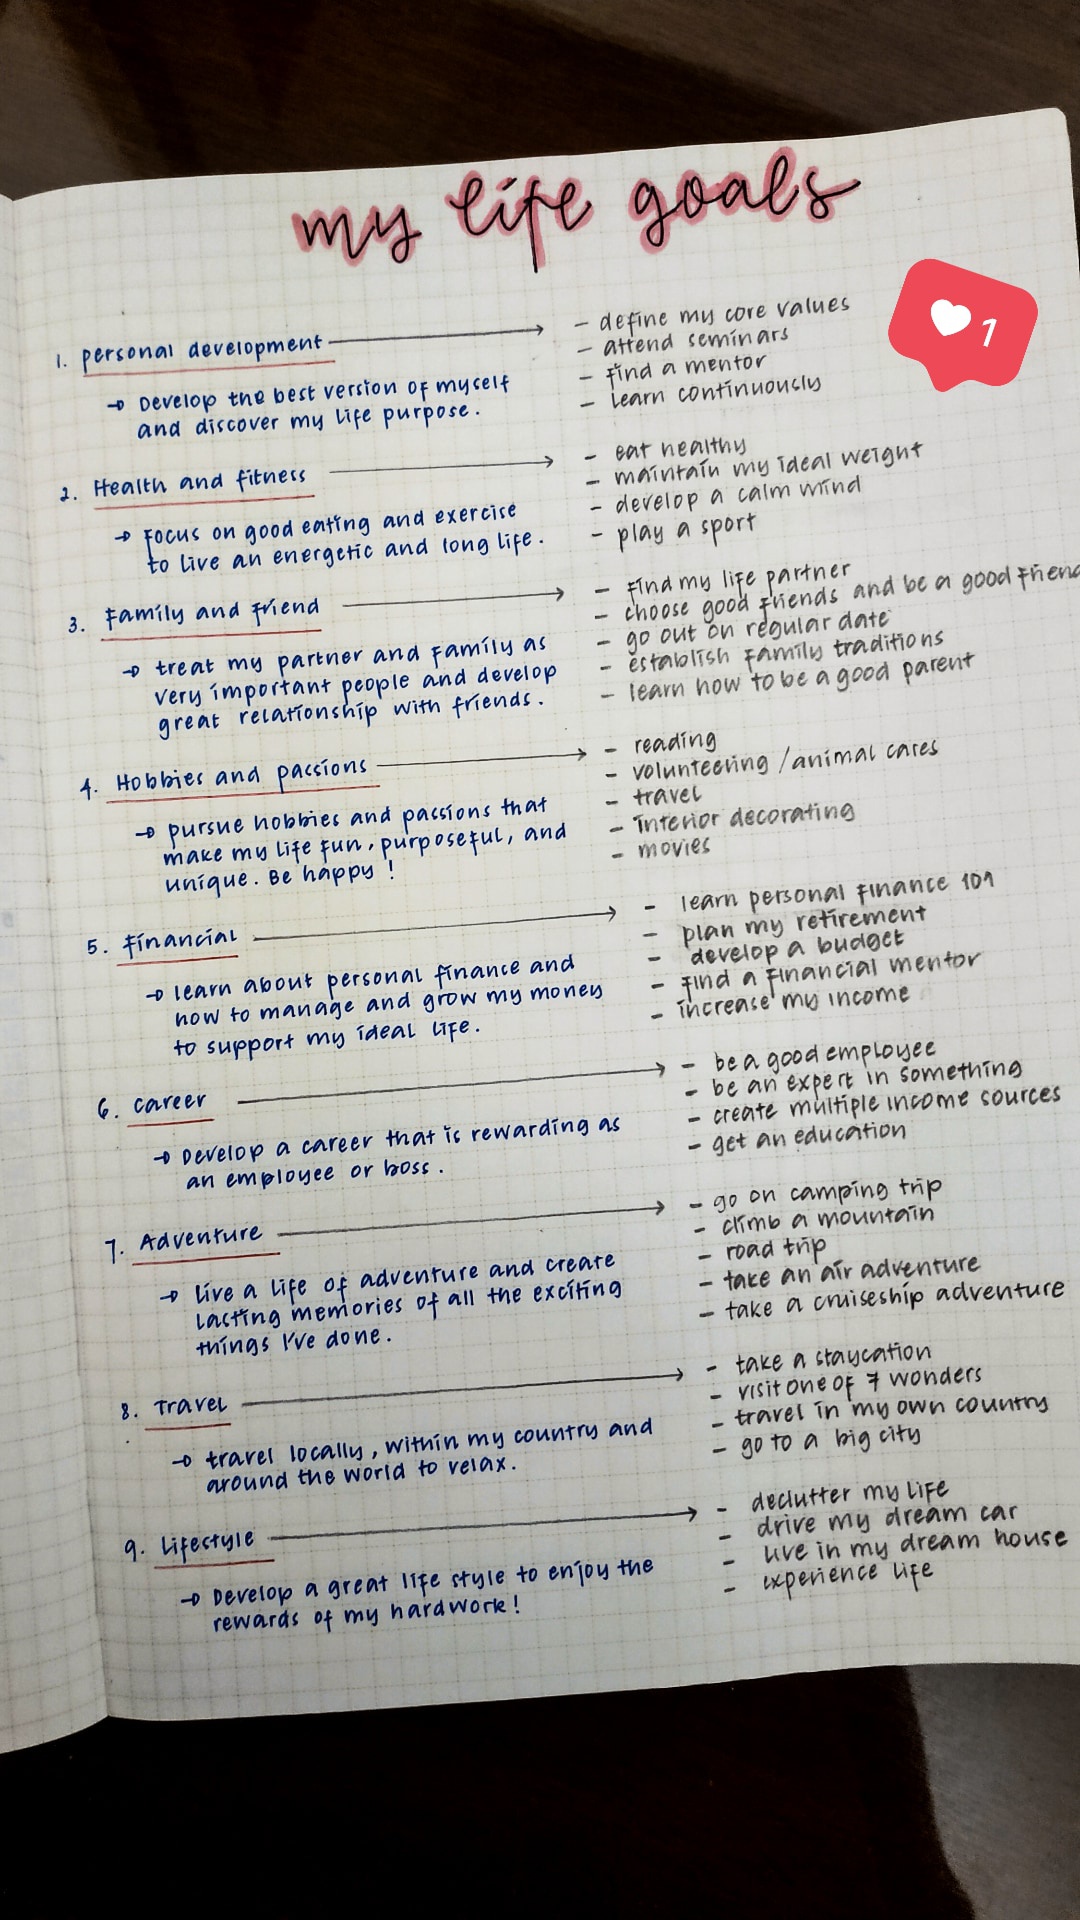 my life goals
1
1. personal development
→ Develop the best version of myself
and discover my life purpose.
- define my core values
- attend seminars
- find a mentor
- learn continuously
2. Health and fitness
→ Focus on good eating and exercise
to live an energetic and long life.
- eat healthy
- maintain my ideal weight
- develop a calm mind
- play a sport
3. Family and friend
→ treat my partner and family as
very important people and develop
great relationship with friends.
- find my life partner
- choose good friends and be a good friend
- go out on regular date
- establish family traditions
- learn how to be a good parent
4. Hobbies and passions
→ pursue hobbies and passions that
make my life fun, purposeful, and
unique. Be happy!
- reading
- volunteering / animal cares
- travel
- interior decorating
- movies
5. Financial
→ learn about personal finance and
how to manage and grow my money
to support my ideal life.
- learn personal finance 101
- plan my retirement
- develop a budget
- find a financial mentor
- increase my income
6. career
→ Develop a career that is rewarding as
an employee or boss.
- be a good employee
- be an expert in something
- create multiple income sources
- get an education
7. Adventure
→ live a life of adventure and create
lasting memories of all the exciting
things I've done.
- go on camping trip
- climb a mountain
- road trip
- take an air adventure
- take a cruiseship adventure
8. Travel
→ travel locally, within my country and
around the world to relax.
- take a staycation
- visit one of 7 wonders
- travel in my own country
- go to a big city
9. Lifestyle
→ Develop a great life style to enjoy the
rewards of my hardwork!
- declutter my life
- drive my dream car
- live in my dream house
- experience life